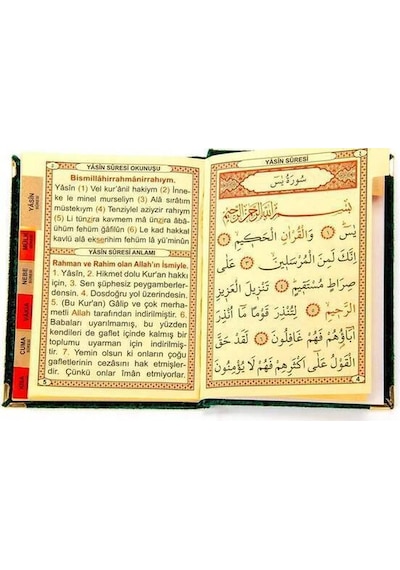 YÂSÎN SÛRESİ OKUNUŞU
Bismillâhirrahmânirrahıym.
Yâsîn (1) Vel kur'ânil hakiym (2) İnne-
ke le minel murseliyn (3) Alâ sırâtım
müstekıym (4) Tenziylel aziyzir rahıym
(5) Li tünzira kavmem mâ ünzira âbâ-
ühüm fehüm ğâfilûn (6) Le kad hakkal
kavlü alâ ekserihim fehüm lâ yü'minûn
YÂSÎN SÛRESİ ANLAMI
Rahman ve Rahim olan Allah'ın İsmiyle.
1. Yâsîn, 2. Hikmet dolu Kur'an hakkı
için, 3. Sen şüphesiz peygamberler-
densin. 4. Dosdoğru yol üzerindesin.
5. (Bu Kur'an) Gâlip ve çok merha-
metli Allah tarafından indirilmiştir. 6.
Babaları uyarılmamış, bu yüzden
kendileri de gaflet içinde kalmış bir
toplumu uyarman için indirilmiş-
tir. 7. Yemin olsun ki onların çoğu
gafletlerinin cezasını hak etmişler-
dir. Çünkü onlar îmân etmiyorlar.
5
YÂSÎN
MÜLK
NEBE
CUMA
YÂSÎN SÛRESİ
سُورَةُ يٰسٓ
بِسْمِ اللّٰهِ الرَّحْمٰنِ الرَّحِيمِ
يٰسٓ ﴿١﴾ وَالْقُرْاٰنِ الْحَكِيمِ ﴿٢﴾
اِنَّكَ لَمِنَ الْمُرْسَلِينَ ﴿٣﴾ عَلٰى
صِرَاطٍ مُسْتَقِيمٍ ﴿٤﴾ تَنْزِيلَ الْعَزِيزِ
الرَّحِيمِ ﴿٥﴾ لِتُنْذِرَ قَوْمًا مَا اُنْذِرَ
اٰبَاؤُهُمْ فَهُمْ غَافِلُونَ ﴿٦﴾ لَقَدْ حَقَّ
الْقَوْلُ عَلٰى اَكْثَرِهِمْ فَهُمْ لَا يُؤْمِنُونَ
4